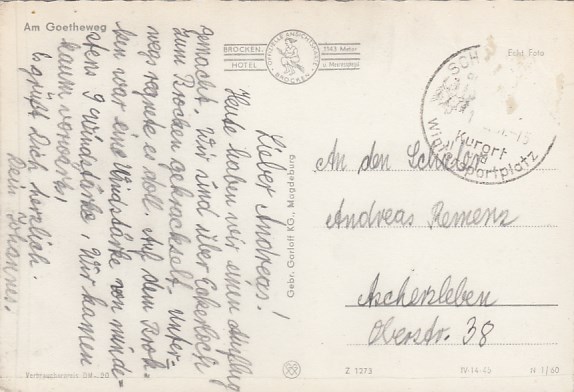 Am Goetheweg
BROCKEN-
HOTEL
OFFIZIELLE ANSICHTSPOSTKARTE
BROCKEN
1143 Meter
ü. Meeresspiegel
Echt Foto
Lieber Andreas!
Heute haben wir einen Ausflug
gemacht. Wir sind über Eckerloch
zum Brocken gekrackselt. Unter=
wegs regnete es doll. Auf dem Brok=
ken war eine Windstärke von minde=
stens 9 Windstärke. Wir kamen
kaum vorwärts!
Es grüßt Dich herzlich
Dein Johannes.
Gebr. Garloff KG., Magdeburg
SCH
Kurort
Wintersportplatz
An den Schüler
Andreas Remenz
Aschersleben
Oberstr. 38
Z 1273
IV-14-45
N 1/60